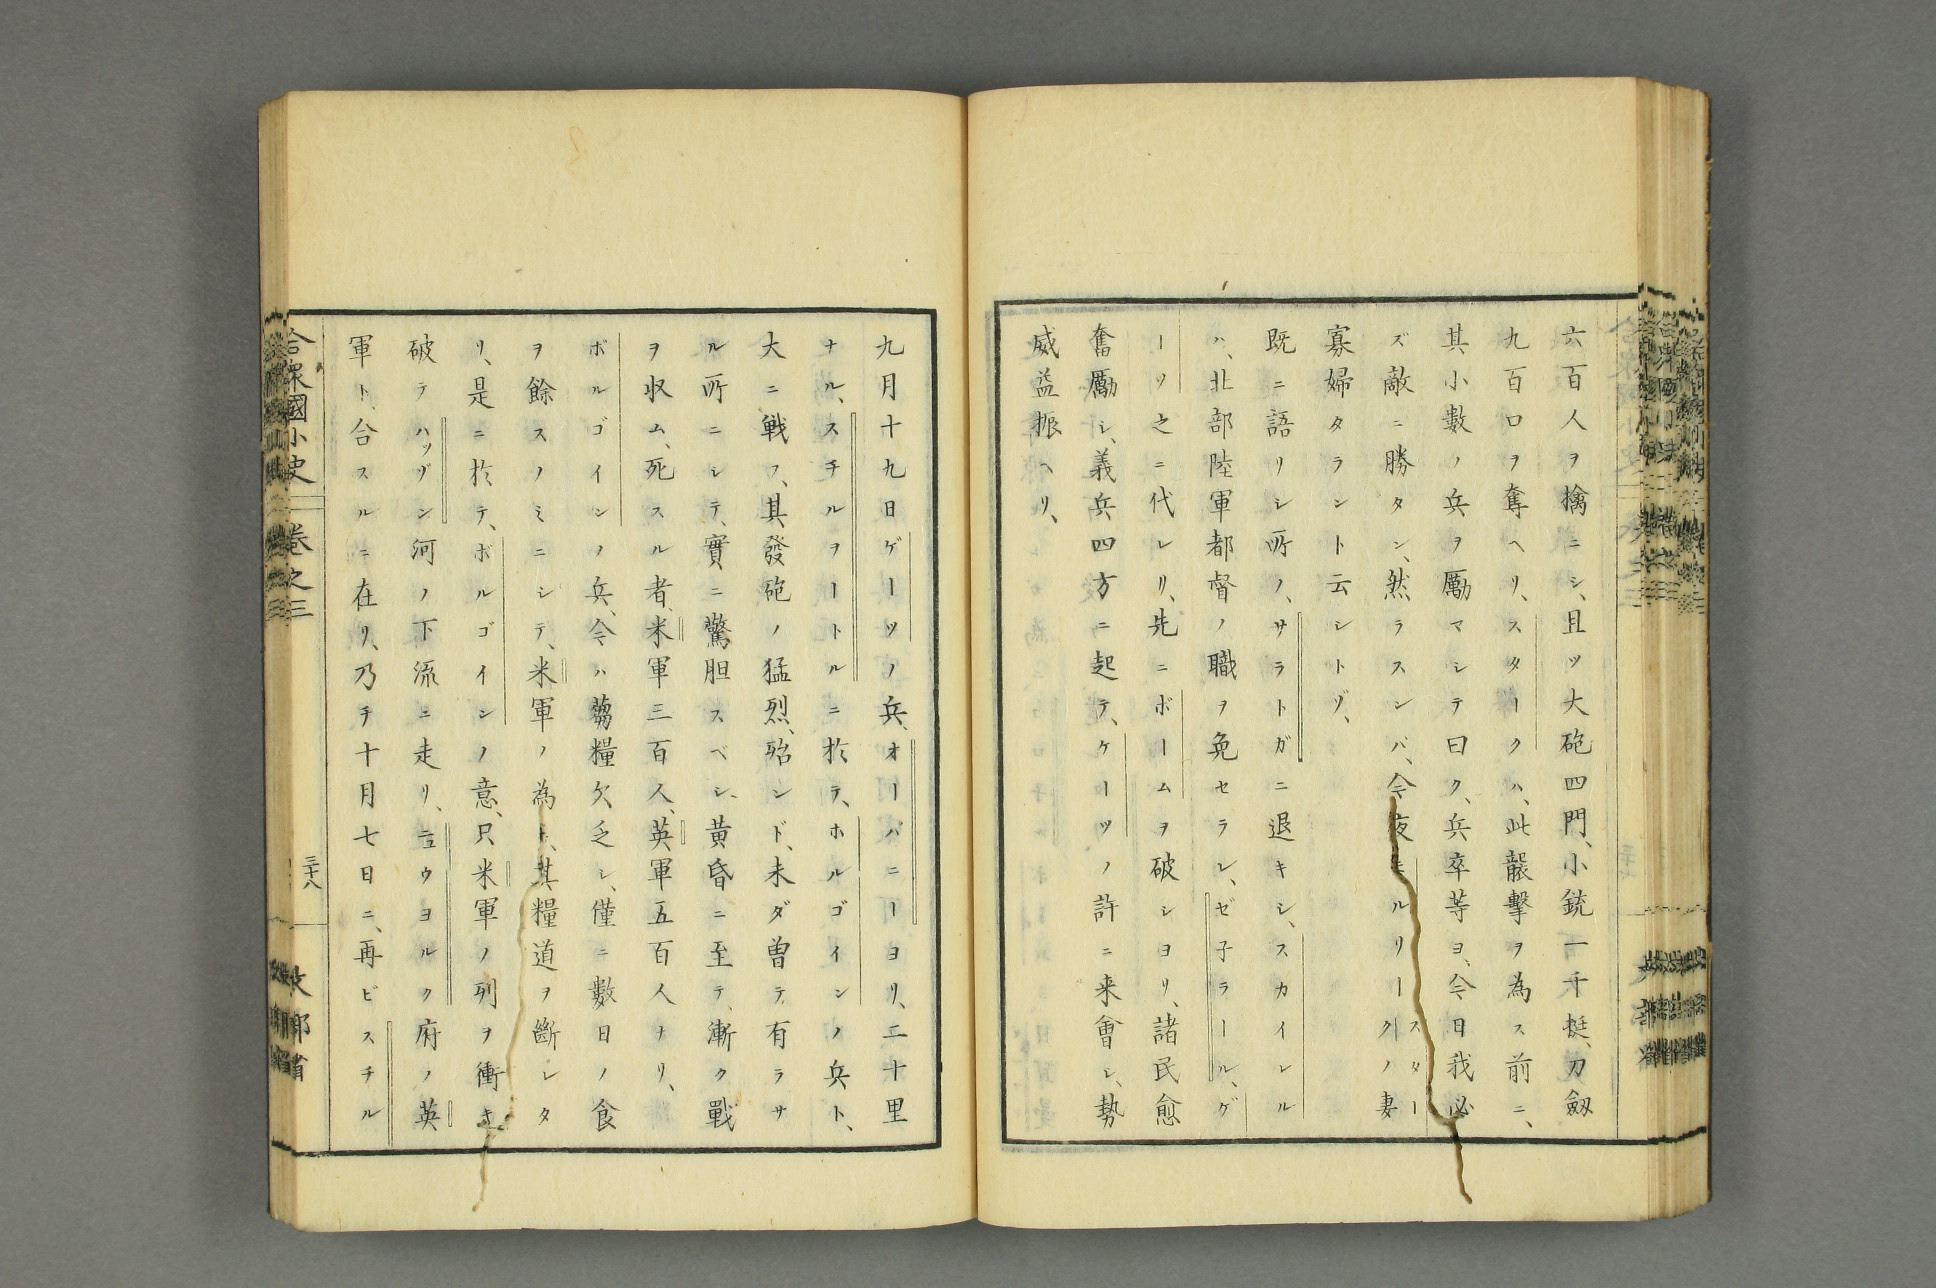 六百人ヲ擒ニシ、且ツ大砲四門、小銃一千挺、刀劔
九百口ヲ奪ヘリ、スタークハ、此襲擊ヲ為ス前ニ、
其小數ノ兵ヲ勵マシテ曰ク、兵卒等ヨ、今日我必
ズ敵ニ勝タン、然ラスンバ、今夜モルリースタークノ妻
寡婦タラント云シトゾ、
既ニ語リシ所ノ、サラトガニ退キシ、スカイレル
ハ、北部陸軍都督ノ職ヲ免セラレ、ゼ子ラール、ゲ
ーツ之ニ代レリ、先ニボームヲ破シヨリ、諸民愈
奮勵シ、義兵四方ニ起テ、ケーツノ許ニ来會シ、勢
威益振ヘリ、
九月十九日ゲーツノ兵、オーハニーヨリ、二十里
ナル、スチルヲートルニ於テ、ホルゴインノ兵ト、
大ニ戰フ、其發砲ノ猛烈、殆ンド、未ダ曽テ有ラサ
ル所ニシテ、實ニ驚胆スベシ、黄昏ニ至テ、漸ク戰
ヲ收ム、死スル者、米軍三百人、英軍五百人ナリ、
ボルゴインノ兵、今ハ蒭糧欠乏シ、僅ニ數日ノ食
ヲ餘スノミニシテ、米軍ノ為ト、其糧道ヲ斷レタ
リ、是ニ於テ、ボルゴインノ意、只米軍ノ列ヲ衝キ
破テハッヅン河ノ下流ニ走リ、ニウヨルク府ノ英
軍ト、合スルニ在リ、乃チ十月七日ニ、再ビスチル
合衆國小史 卷之三 三十八 文部省